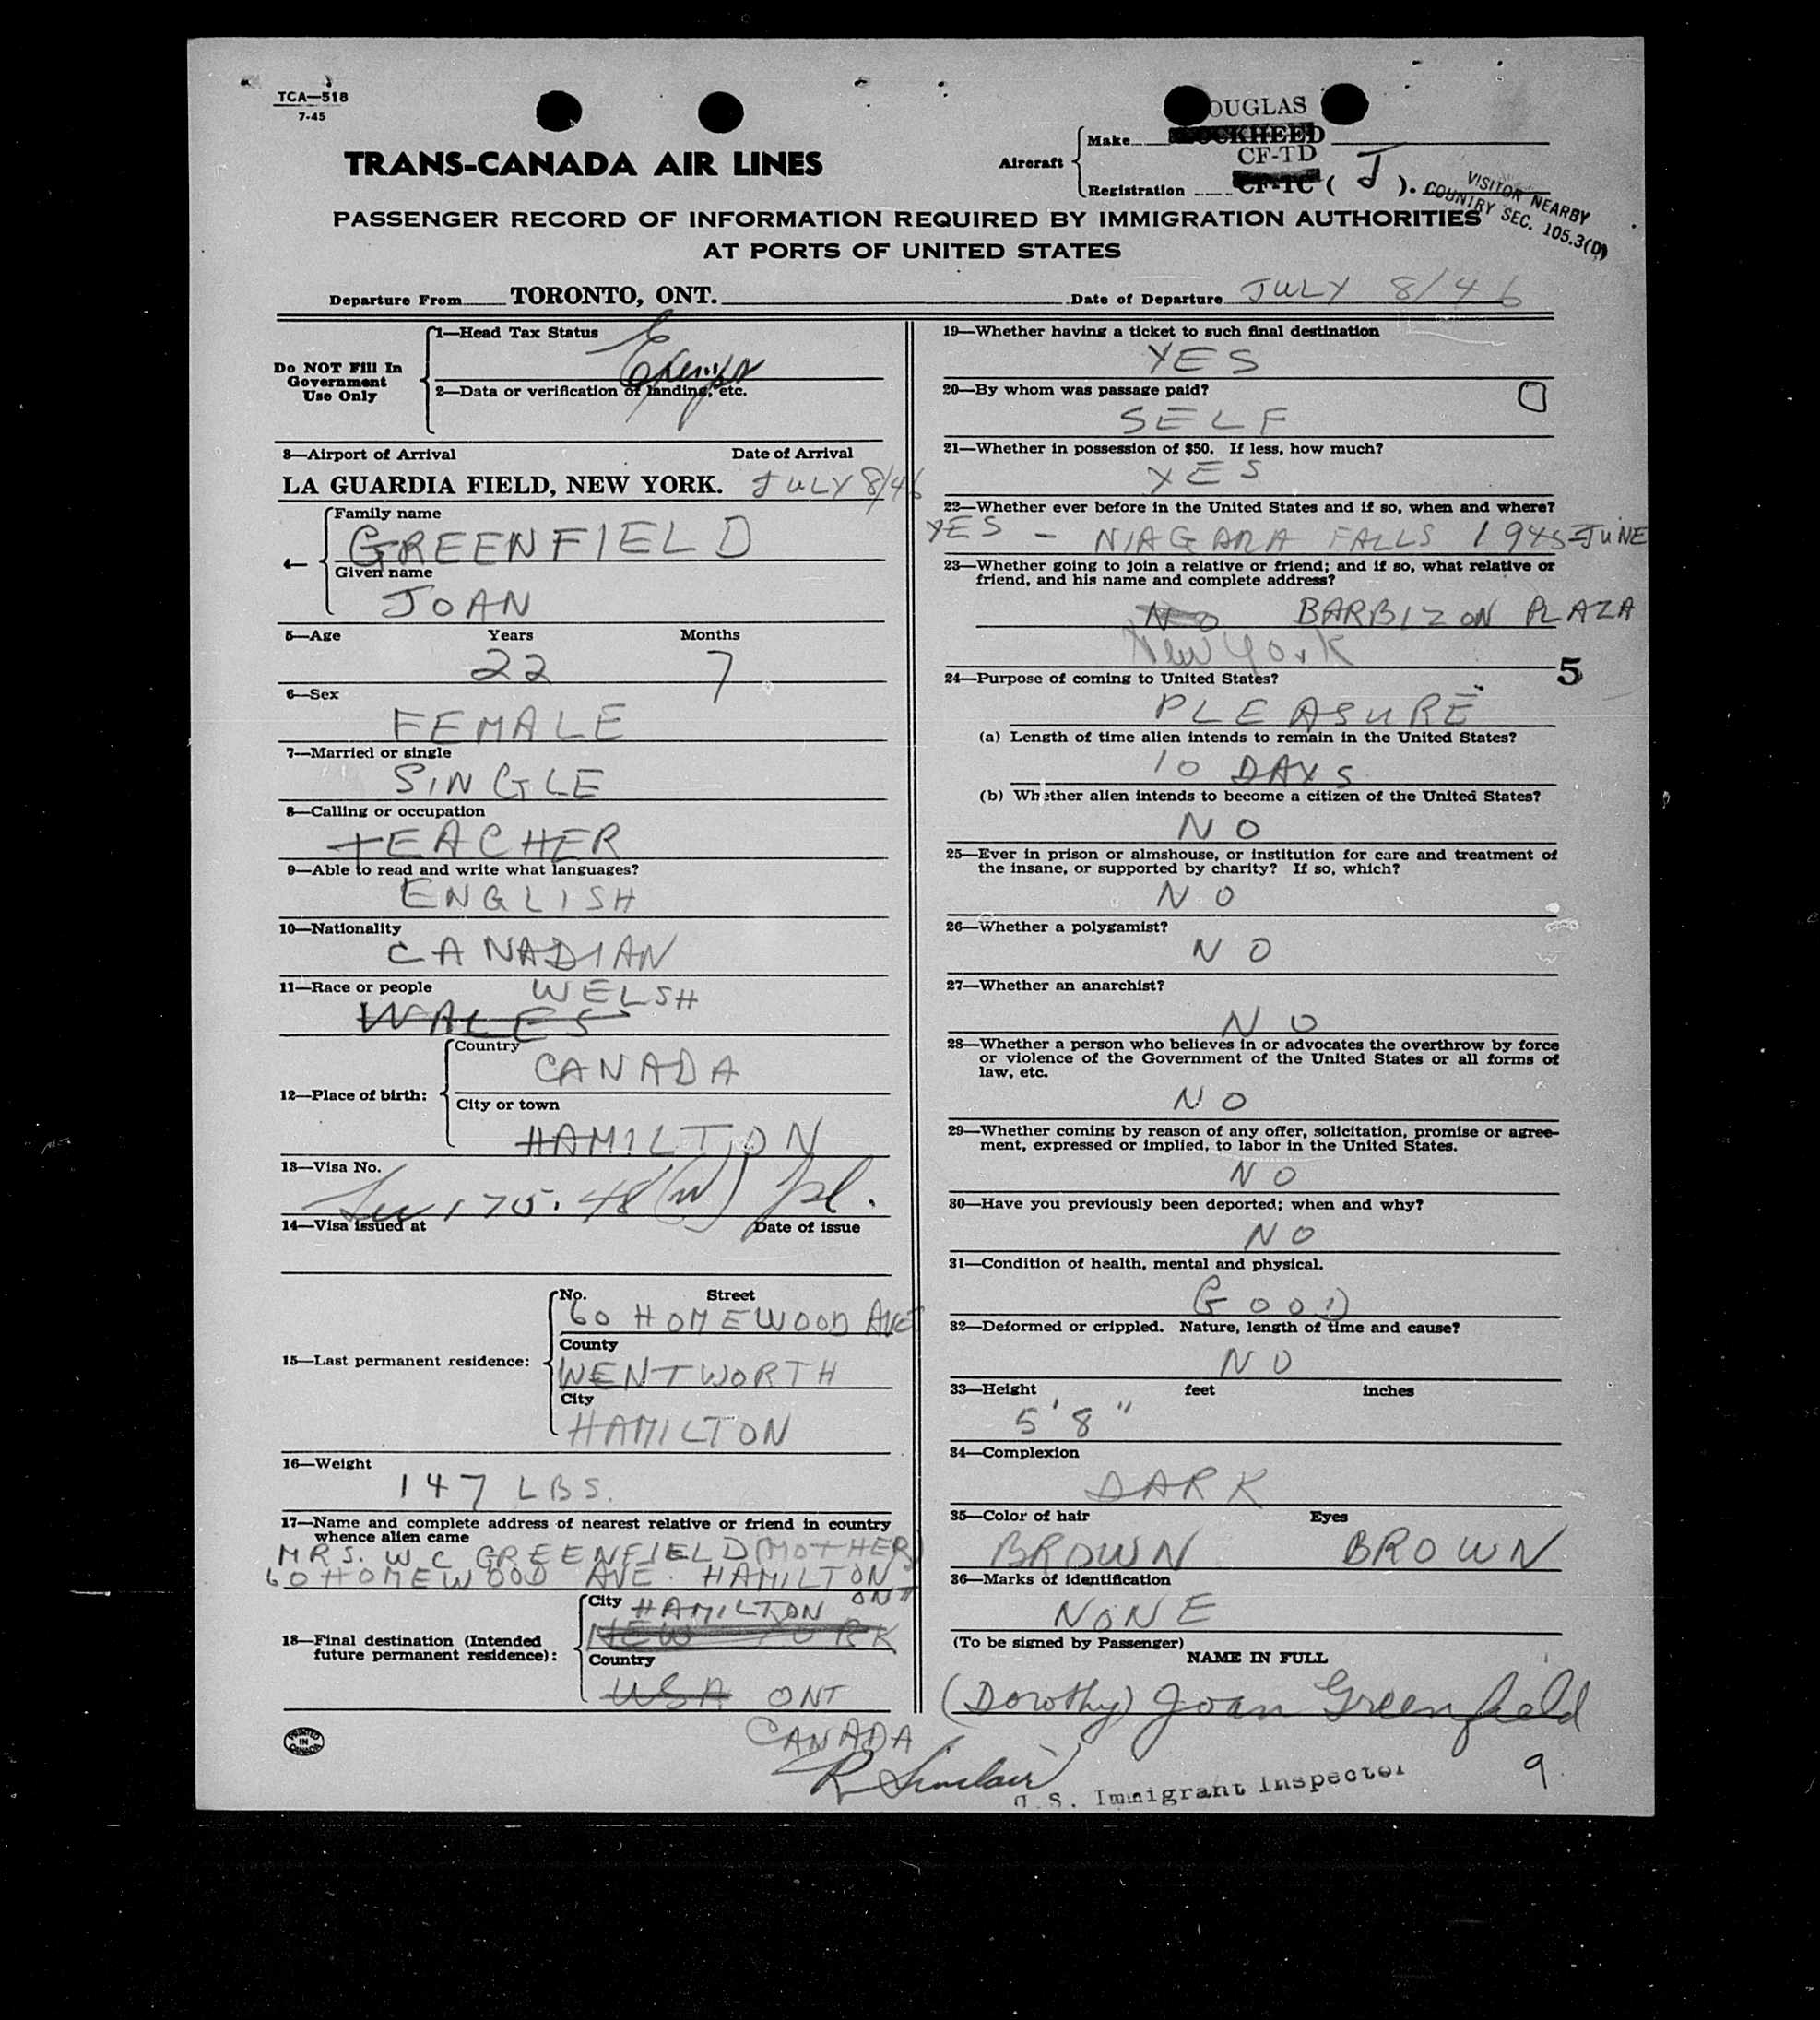 TCA—518
7-45
OUGLAS
TRANS-CANADA AIR LINES
Aircraft
Make
OCKHEED
CF-TD
Registration CF-TC ( J ).
VISITOR NEARBY
COUNTRY SEC. 105.3(D)
PASSENGER RECORD OF INFORMATION REQUIRED BY IMMIGRATION AUTHORITIES
AT PORTS OF UNITED STATES
Departure From TORONTO, ONT. Date of Departure JULY 8/46
Do NOT Fill In
Government
Use Only
1—Head Tax Status
Exempt
2—Data or verification of landing, etc.
3—Airport of Arrival Date of Arrival
LA GUARDIA FIELD, NEW YORK. JULY 8/46
4—
Family name
GREENFIELD
Given name
JOAN
5—Age Years Months
22 7
6—Sex
FEMALE
7—Married or single
SINGLE
8—Calling or occupation
TEACHER
9—Able to read and write what languages?
ENGLISH
10—Nationality
CANADIAN
11—Race or people WELSH
WALES
12—Place of birth:
Country
CANADA
City or town
HAMILTON
13—Visa No.
175.48
14—Visa issued at Date of issue
15—Last permanent residence:
No. Street
60 HOMEWOOD AVE
County
WENTWORTH
City
HAMILTON
16—Weight
147 LBS.
17—Name and complete address of nearest relative or friend in country
whence alien came
MRS. W C GREENFIELD (MOTHER)
60 HOMEWOOD AVE. HAMILTON
ONT
18—Final destination (Intended
future permanent residence):
City HAMILTON
NEW YORK
Country
USA ONT
CANADA
PRINTED
IN
CANADA
19—Whether having a ticket to such final destination
YES
20—By whom was passage paid?
SELF
21—Whether in possession of $50. If less, how much?
YES
22—Whether ever before in the United States and if so, when and where?
YES - NIAGARA FALLS 1945-JUNE
23—Whether going to join a relative or friend; and if so, what relative or
friend, and his name and complete address?
NO BARBIZON PLAZA
New York
5
24—Purpose of coming to United States?
PLEASURE
(a) Length of time alien intends to remain in the United States?
10 DAYS
(b) Whether alien intends to become a citizen of the United States?
NO
25—Ever in prison or almshouse, or institution for care and treatment of
the insane, or supported by charity? If so, which?
NO
26—Whether a polygamist?
NO
27—Whether an anarchist?
NO
28—Whether a person who believes in or advocates the overthrow by force
or violence of the Government of the United States or all forms of
law, etc.
NO
29—Whether coming by reason of any offer, solicitation, promise or agree-
ment, expressed or implied, to labor in the United States.
NO
30—Have you previously been deported; when and why?
NO
31—Condition of health, mental and physical.
GOOD
32—Deformed or crippled. Nature, length of time and cause?
NO
33—Height feet inches
5'8"
34—Complexion
DARK
35—Color of hair Eyes
BROWN BROWN
36—Marks of identification
NONE
(To be signed by Passenger)
NAME IN FULL
(Dorothy) Joan Greenfield
R Sinclair
U.S. Immigrant Inspector
9